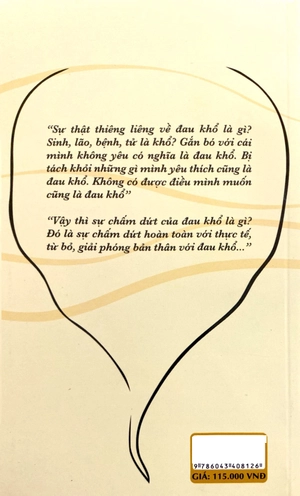 “Sự thật thiêng liêng về đau khổ là gì?
Sinh, lão, bệnh, tử là khổ? Gắn bó với cái
mình không yêu có nghĩa là đau khổ. Bị
tách khỏi những gì mình yêu thích cũng là
đau khổ. Không có được điều mình muốn
cũng là đau khổ”
“Vậy thì sự chấm dứt của đau khổ là gì?
Đó là sự chấm dứt hoàn toàn với thực tế,
từ bỏ, giải phóng bản thân với đau khổ...”
9 786043 408126
GIÁ: 115.000 VNĐ